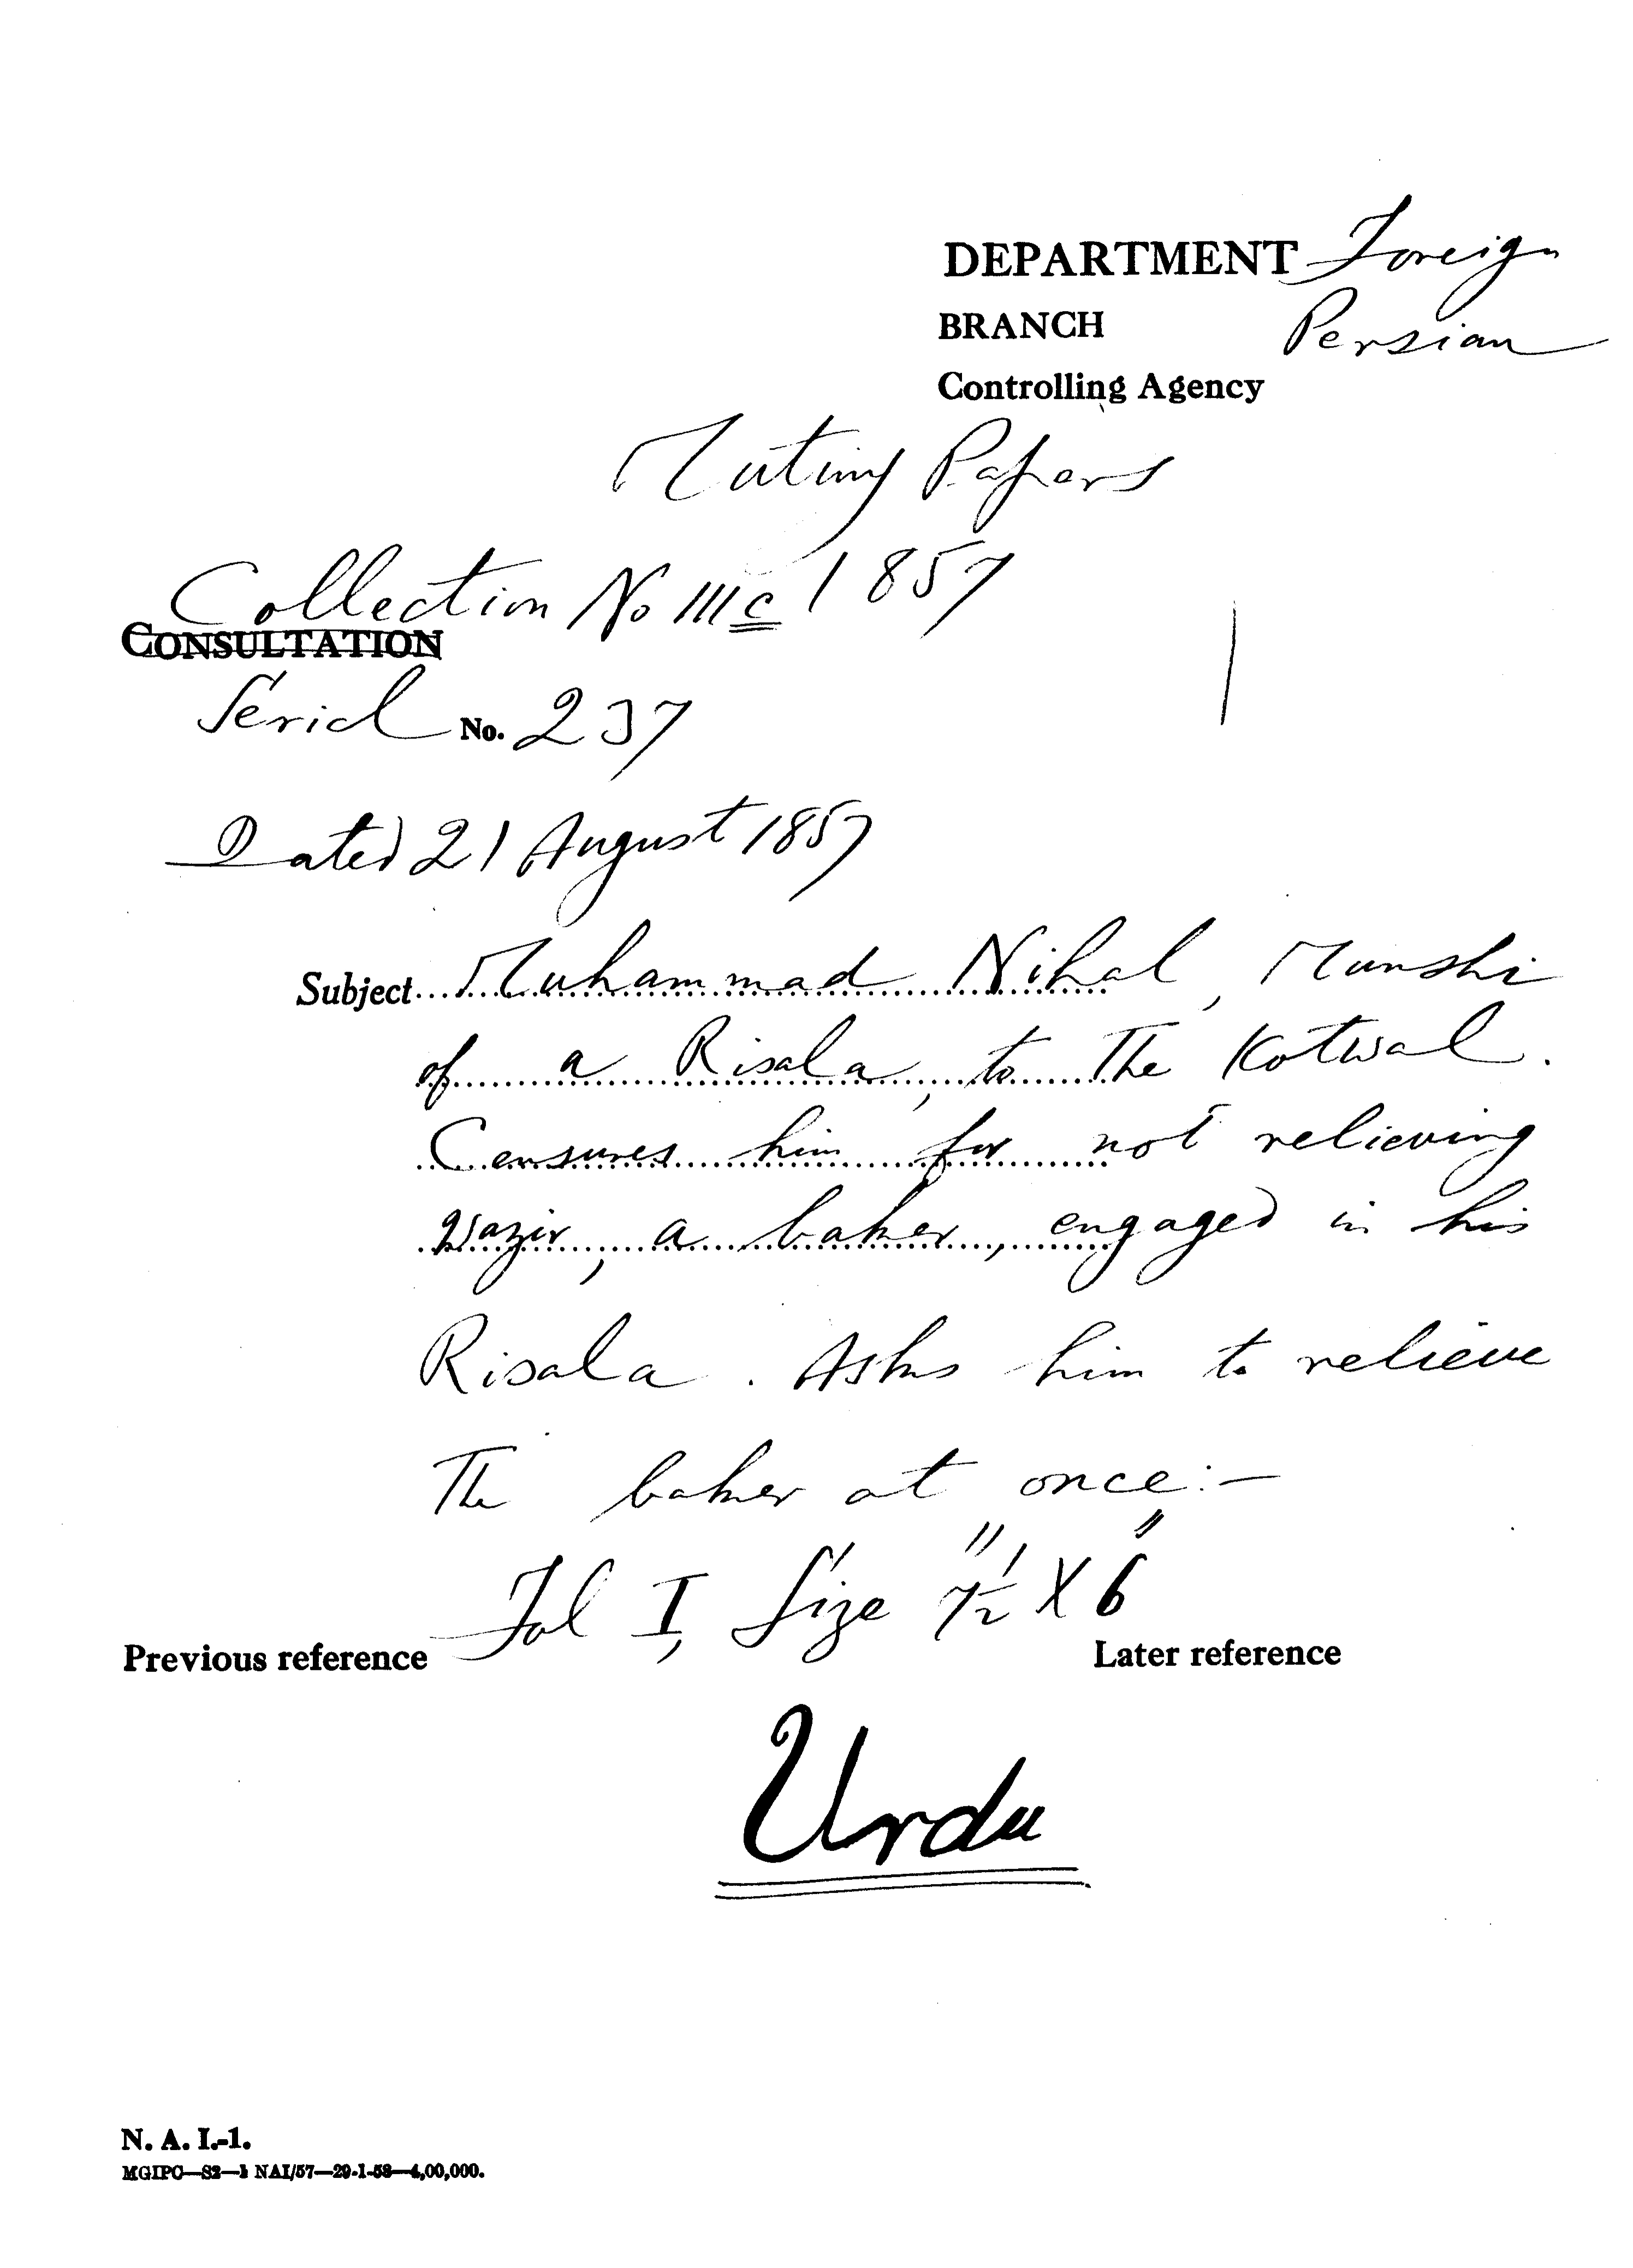 DEPARTMENT Foreign
BRANCH Persian
Controlling Agency
Mutiny Papers
Collection No IIIc 1857
CONSULTATION
Serial No. 237
Dated 21 August 1857
Subject Muhammad Nihal, Munshi
of a Risala, to The Kotwal.
Censures him for not relieving
Wazir, a baker, engaged in his
Risala. Asks him to relieve
The baker at once:-
Fol I, Size 7½" X 6"
Previous reference Later reference
Urdu
N. A. I.-1.
MGIPC—S2—1 NAI/57—29-1-58—4,00,000.